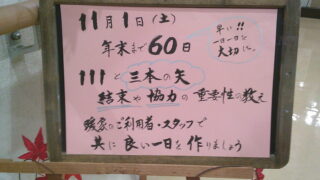 11月1日(土)
早い!!
一日一日を
大切に。
年末まで60日
111と三本の矢
結束や協力の重要性の教え
ご利用者・スタッフで
共に良い一日を作りましょう